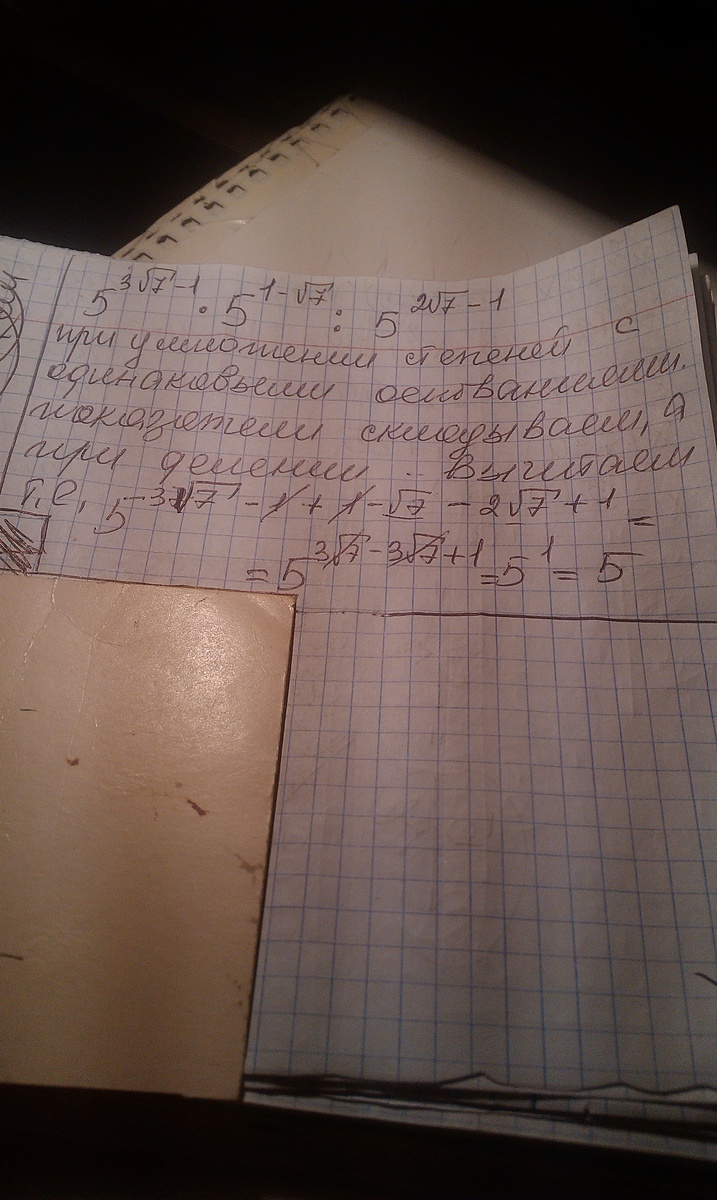 5^{3√7-1} · 5^{1-√7} : 5^{2√7-1}
при умножении степеней с
одинаковыми основаниями
показатели складываем, а
при делении .. вычитаем
т.е. 5^{3√7-1+1-√7-2√7+1} =
= 5^{3√7-3√7+1} = 5^1 = 5